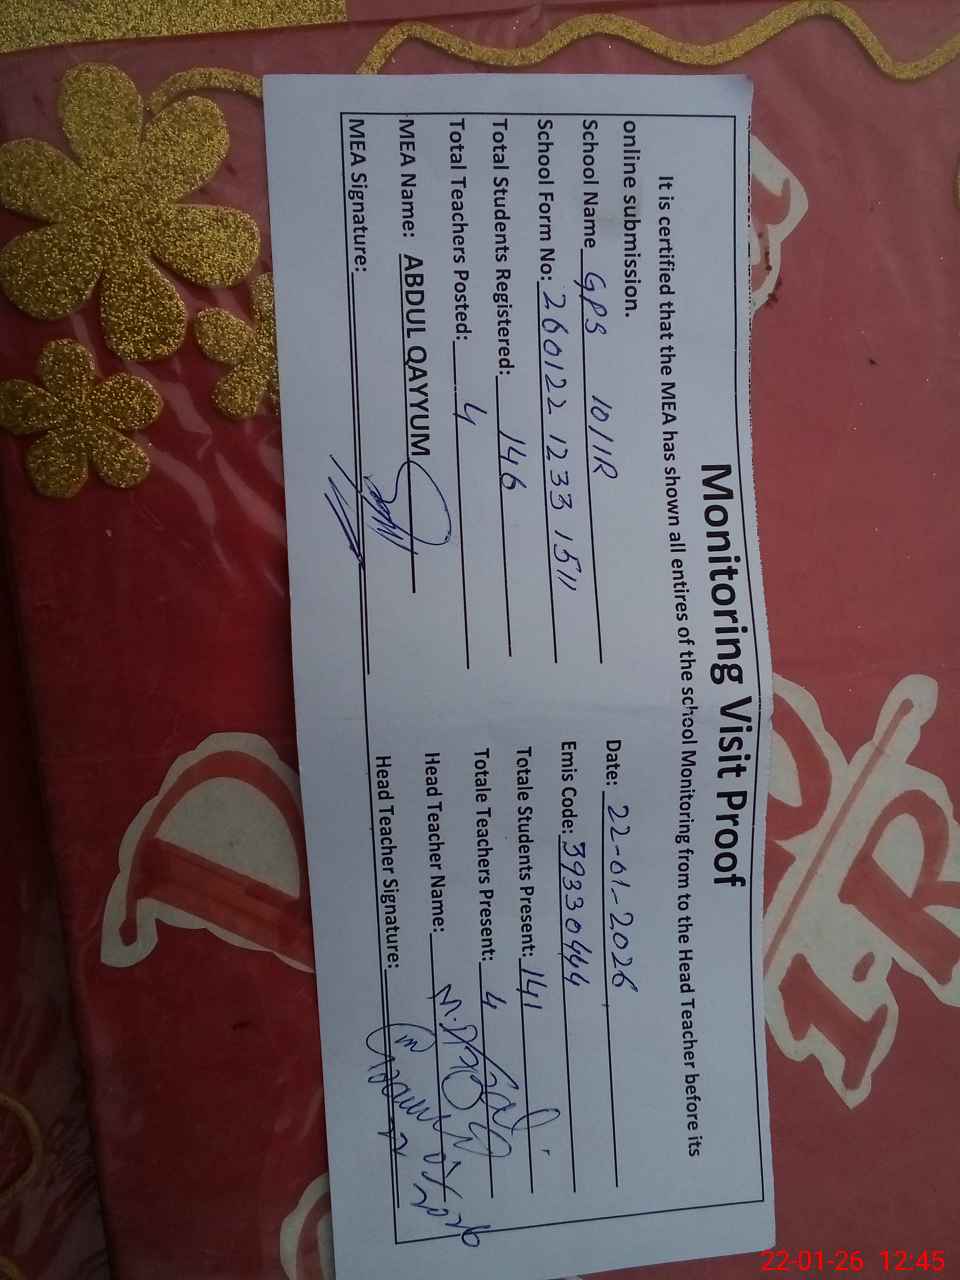 Monitoring Visit Proof
It is certified that the MEA has shown all entires of the school Monitoring from to the Head Teacher before its
online submission.
School Name GPS 10/1R Date: 22-01-2026
School Form No: 260122 1233 1511 Emis Code: 39330444
Total Students Registered: 146 Totale Students Present: 141
Total Teachers Posted: 4 Totale Teachers Present: 4
MEA Name: ABDUL QAYYUM Head Teacher Name:
MEA Signature: Head Teacher Signature:
22-01-26 12:45